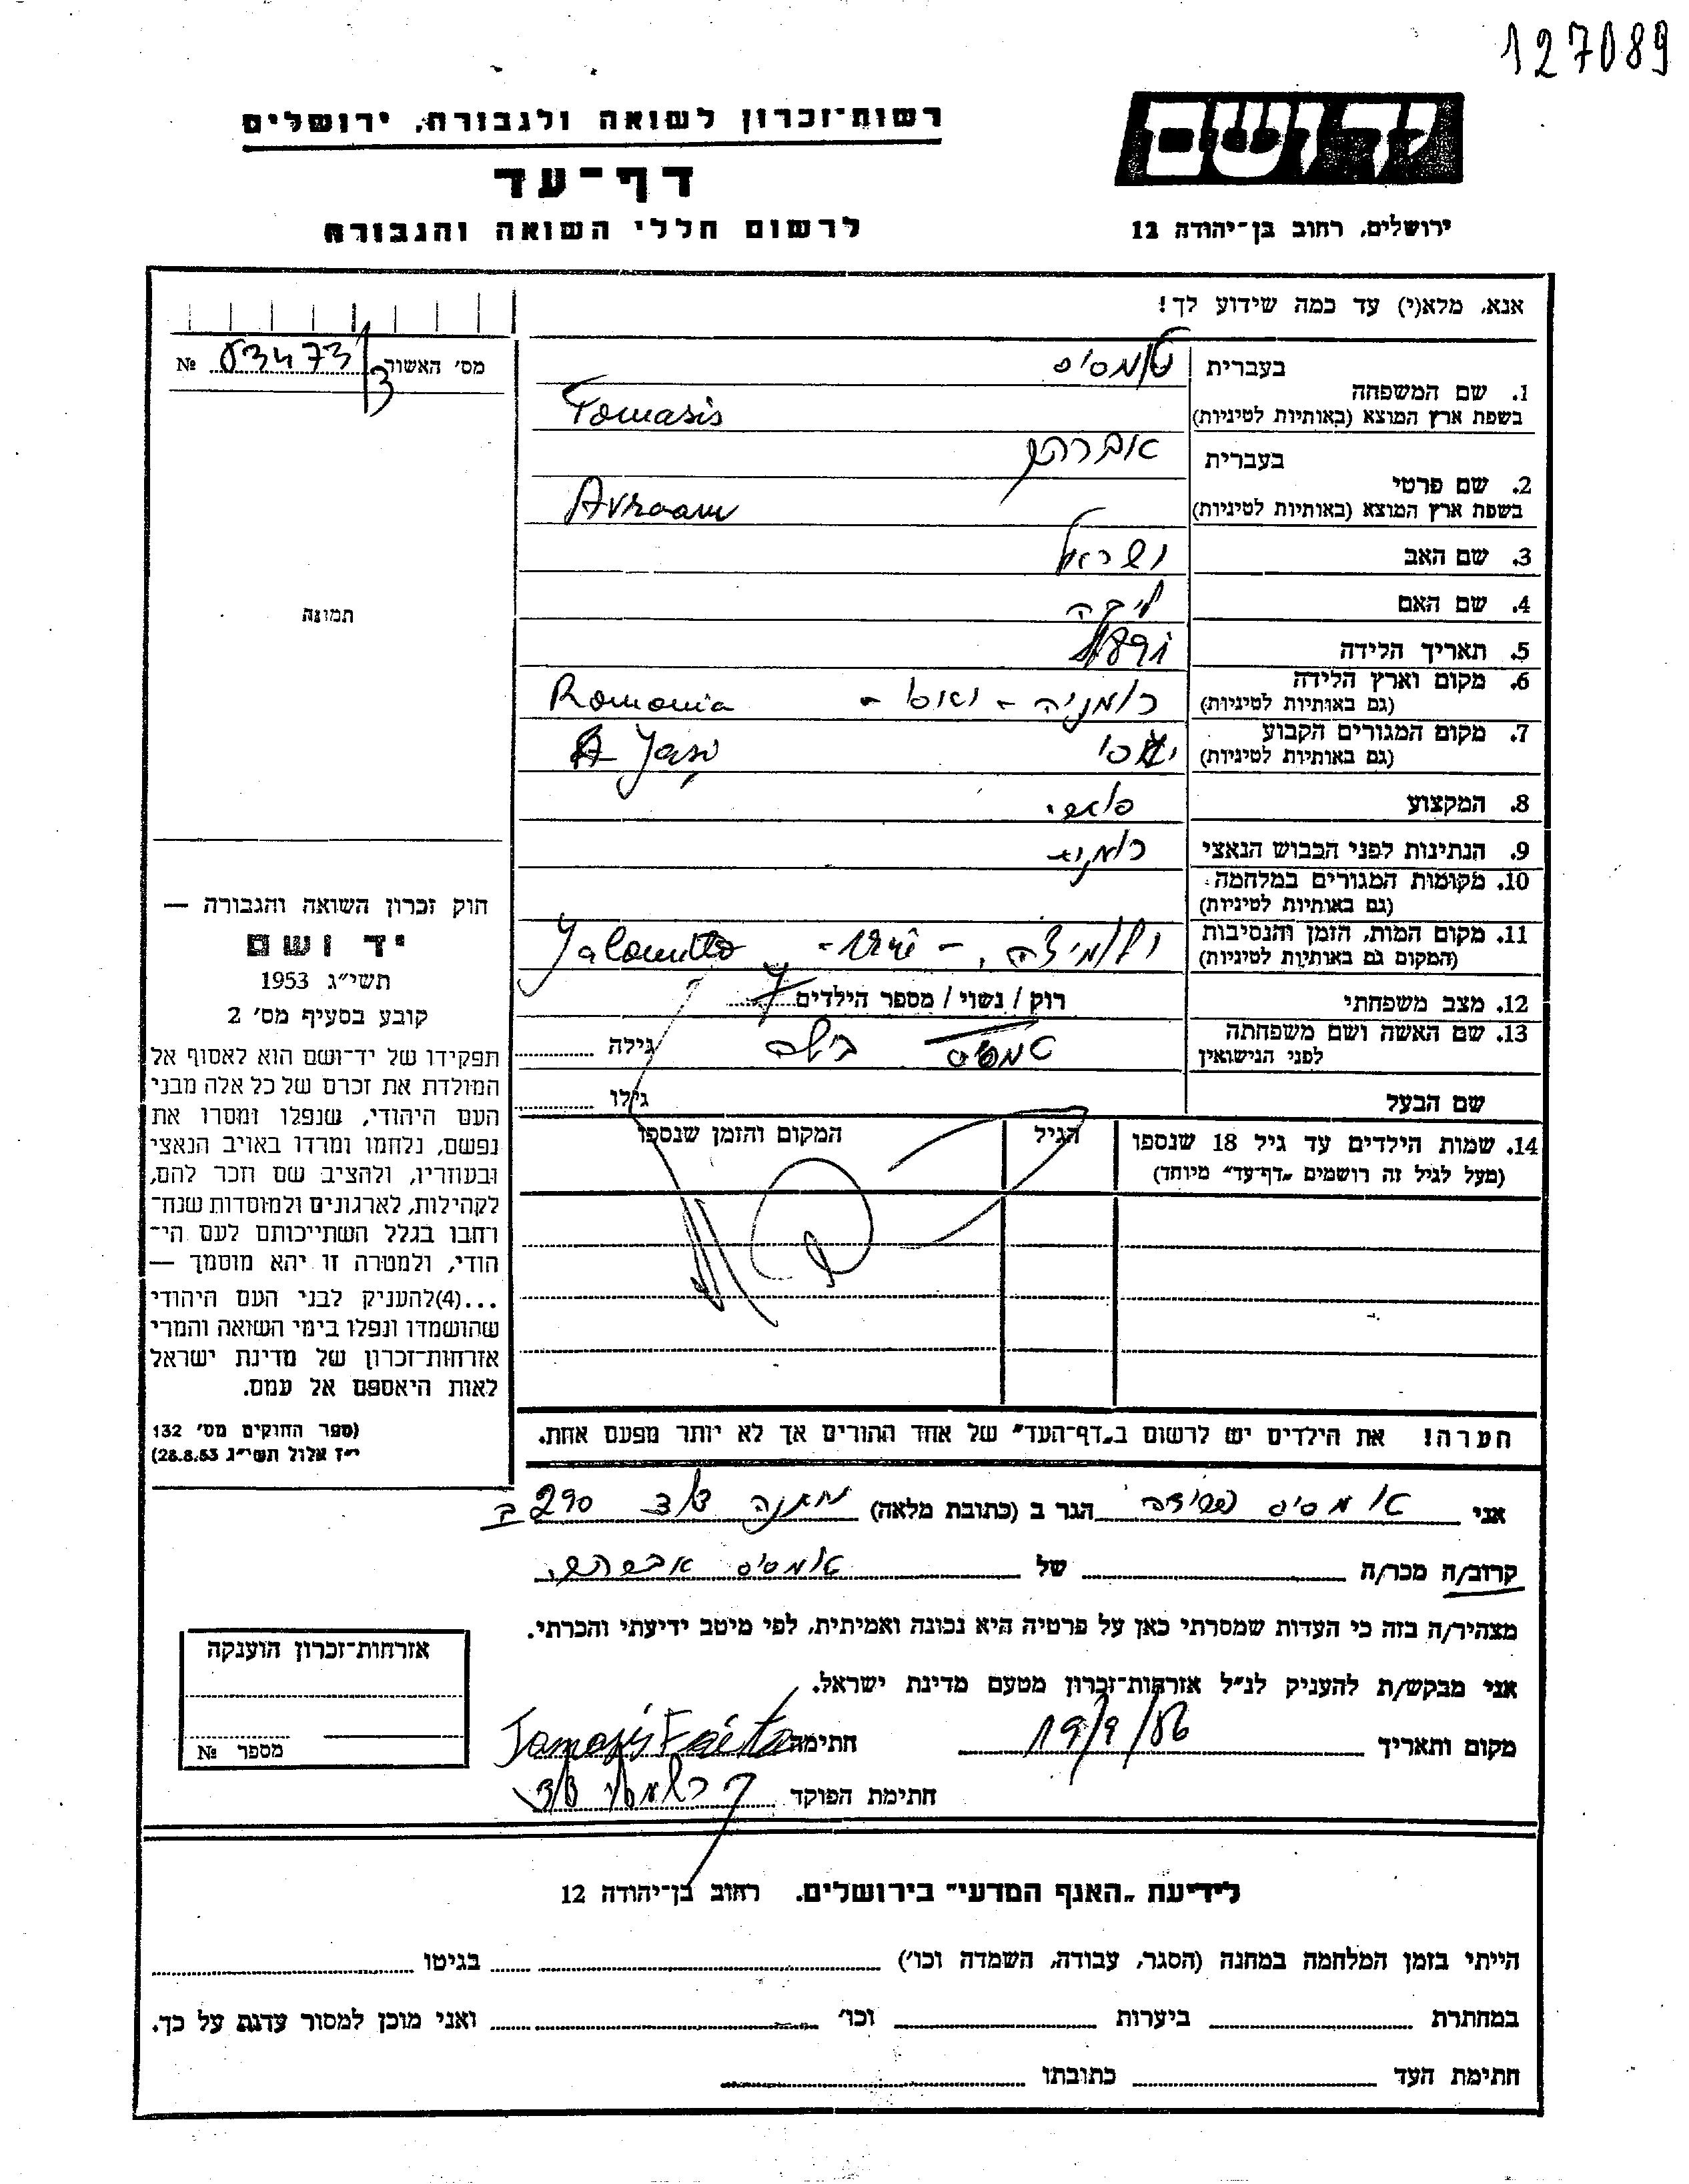 127089
יד ושם
רשות־זכרון לשואה ולגבורה, ירושלים
דף־עד
ירושלים, רחוב בן־יהודה 12
לרשום חללי השואה והגבורה
אנא, מלא(י) עד כמה שידוע לך!
מס׳ האשור 03473 №
3
בעברית טומסיס
1. שם המשפחה
בשפת ארץ המוצא (באותיות לטיניות) Tomasis
בעברית אברהם
2. שם פרטי
בשפת ארץ המוצא (באותיות לטיניות) Avraam
3. שם האב ישראל
4. שם האם
5. תאריך הלידה
6. מקום וארץ הלידה
(גם באותיות לטיניות) רומניה - יאסי - Romania
7. מקום המגורים הקבוע
(גם באותיות לטיניות) יאסי Jași
8. המקצוע
9. הנתינות לפני הכבוש הנאצי
10. מקומות המגורים במלחמה
(גם באותיות לטיניות)
11. מקום המות, הזמן והנסיבות
(המקום גם באותיות לטיניות)
12. מצב משפחתי רוק / נשוי / מספר הילדים 7
13. שם האשה ושם משפחתה
לפני הנישואין גילה
שם הבעל גילו
14. שמות הילדים עד גיל 18 שנספו הגיל המקום והזמן שנספו
(מעל לגיל זה רושמים „דף־עד״ מיוחד)
הערה! את הילדים יש לרשום ב„דף־העד״ של אחד ההורים אך לא יותר מפעם אחת.
תמונה
חוק זכרון השואה והגבורה —
יד ושם
תשי״ג 1953
קובע בסעיף מס׳ 2
תפקידו של יד־ושם הוא לאסוף אל
המולדת את זכרם של כל אלה מבני
העם היהודי, שנפלו ומסרו את
נפשם, נלחמו ומרדו באויב הנאצי
ובעוזריו, ולהציב שם וזכר להם,
לקהילות, לארגונים ולמוסדות שנח־
רחבו בגלל השתייכותם לעם הי־
הודי, ולמטרה זו יהא מוסמך —
...(4)להעניק לבני העם היהודי
שהושמדו ונפלו בימי השואה והמרי
אזרחות־זכרון של מדינת ישראל
לאות היאספם אל עמם.
(ספר החוקים מס׳ 132
י״ז אלול תשי״ג 28.8.53)
אני טומסיס הגר ב (כתובת מלאה) 290 ב
קרוב/ה מכר/ה של טומסיס אברהם
מצהיר/ה בזה כי העדות שמסרתי כאן על פרטיה היא נכונה ואמיתית, לפי מיטב ידיעתי והכרתי.
אני מבקש/ת להעניק לנ״ל אזרחות־זכרון מטעם מדינת ישראל.
מקום ותאריך 19/9/56 חתימה
חתימת הפוקד
אזרחות־זכרון הוענקה
מספר №
לידיעת „האגף המדעי״ בירושלים. רחוב בן־יהודה 12
הייתי בזמן המלחמה במחנה (הסגר, עבודה, השמדה וכו׳) בגיטו
במחתרת ביערות וכו׳ ואני מוכן למסור עדות על כך.
חתימת העד כתובתו